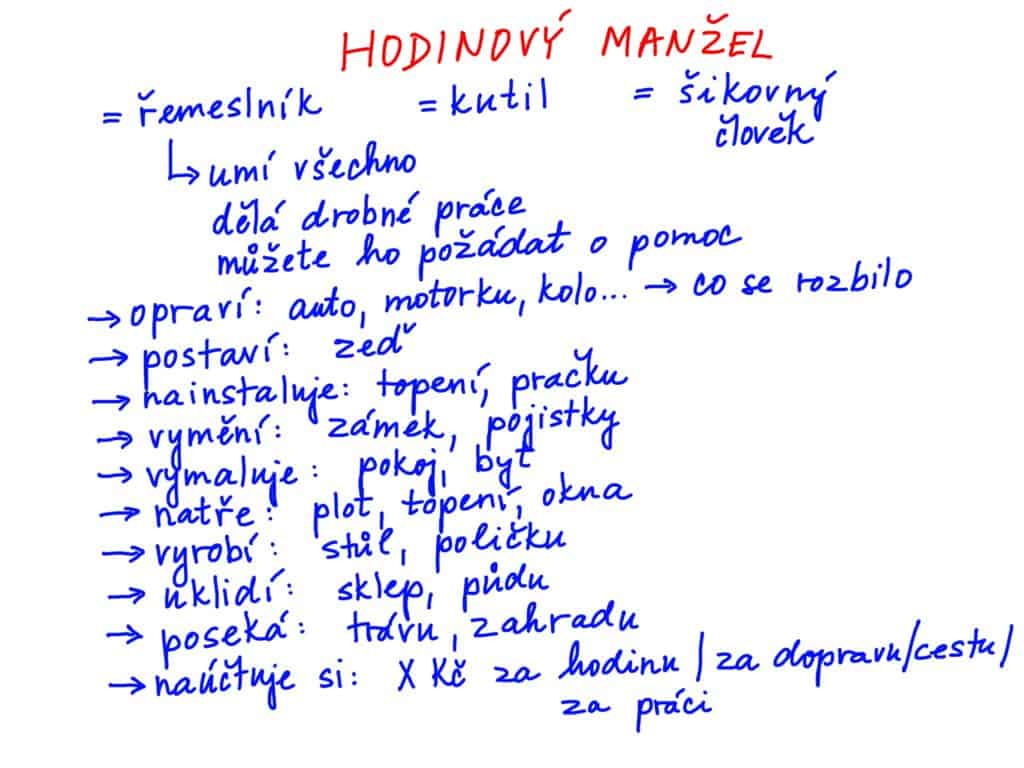 HODINOVÝ MANŽEL
= řemeslník = kutil = šikovný
člověk
↳ umí všechno
dělá drobné práce
můžete ho požádat o pomoc
→ opraví: auto, motorku, kolo... → co se rozbilo
→ postaví: zeď
→ nainstaluje: topení, pračku
→ vymění: zámek, pojistky
→ vymaluje: pokoj, byt
→ natře: plot, topení, okna
→ vyrobí: stůl, poličku
→ uklidí: sklep, půdu
→ poseká: trávu, zahradu
→ naúčtuje si: X Kč za hodinu / za dopravu/cestu/
za práci